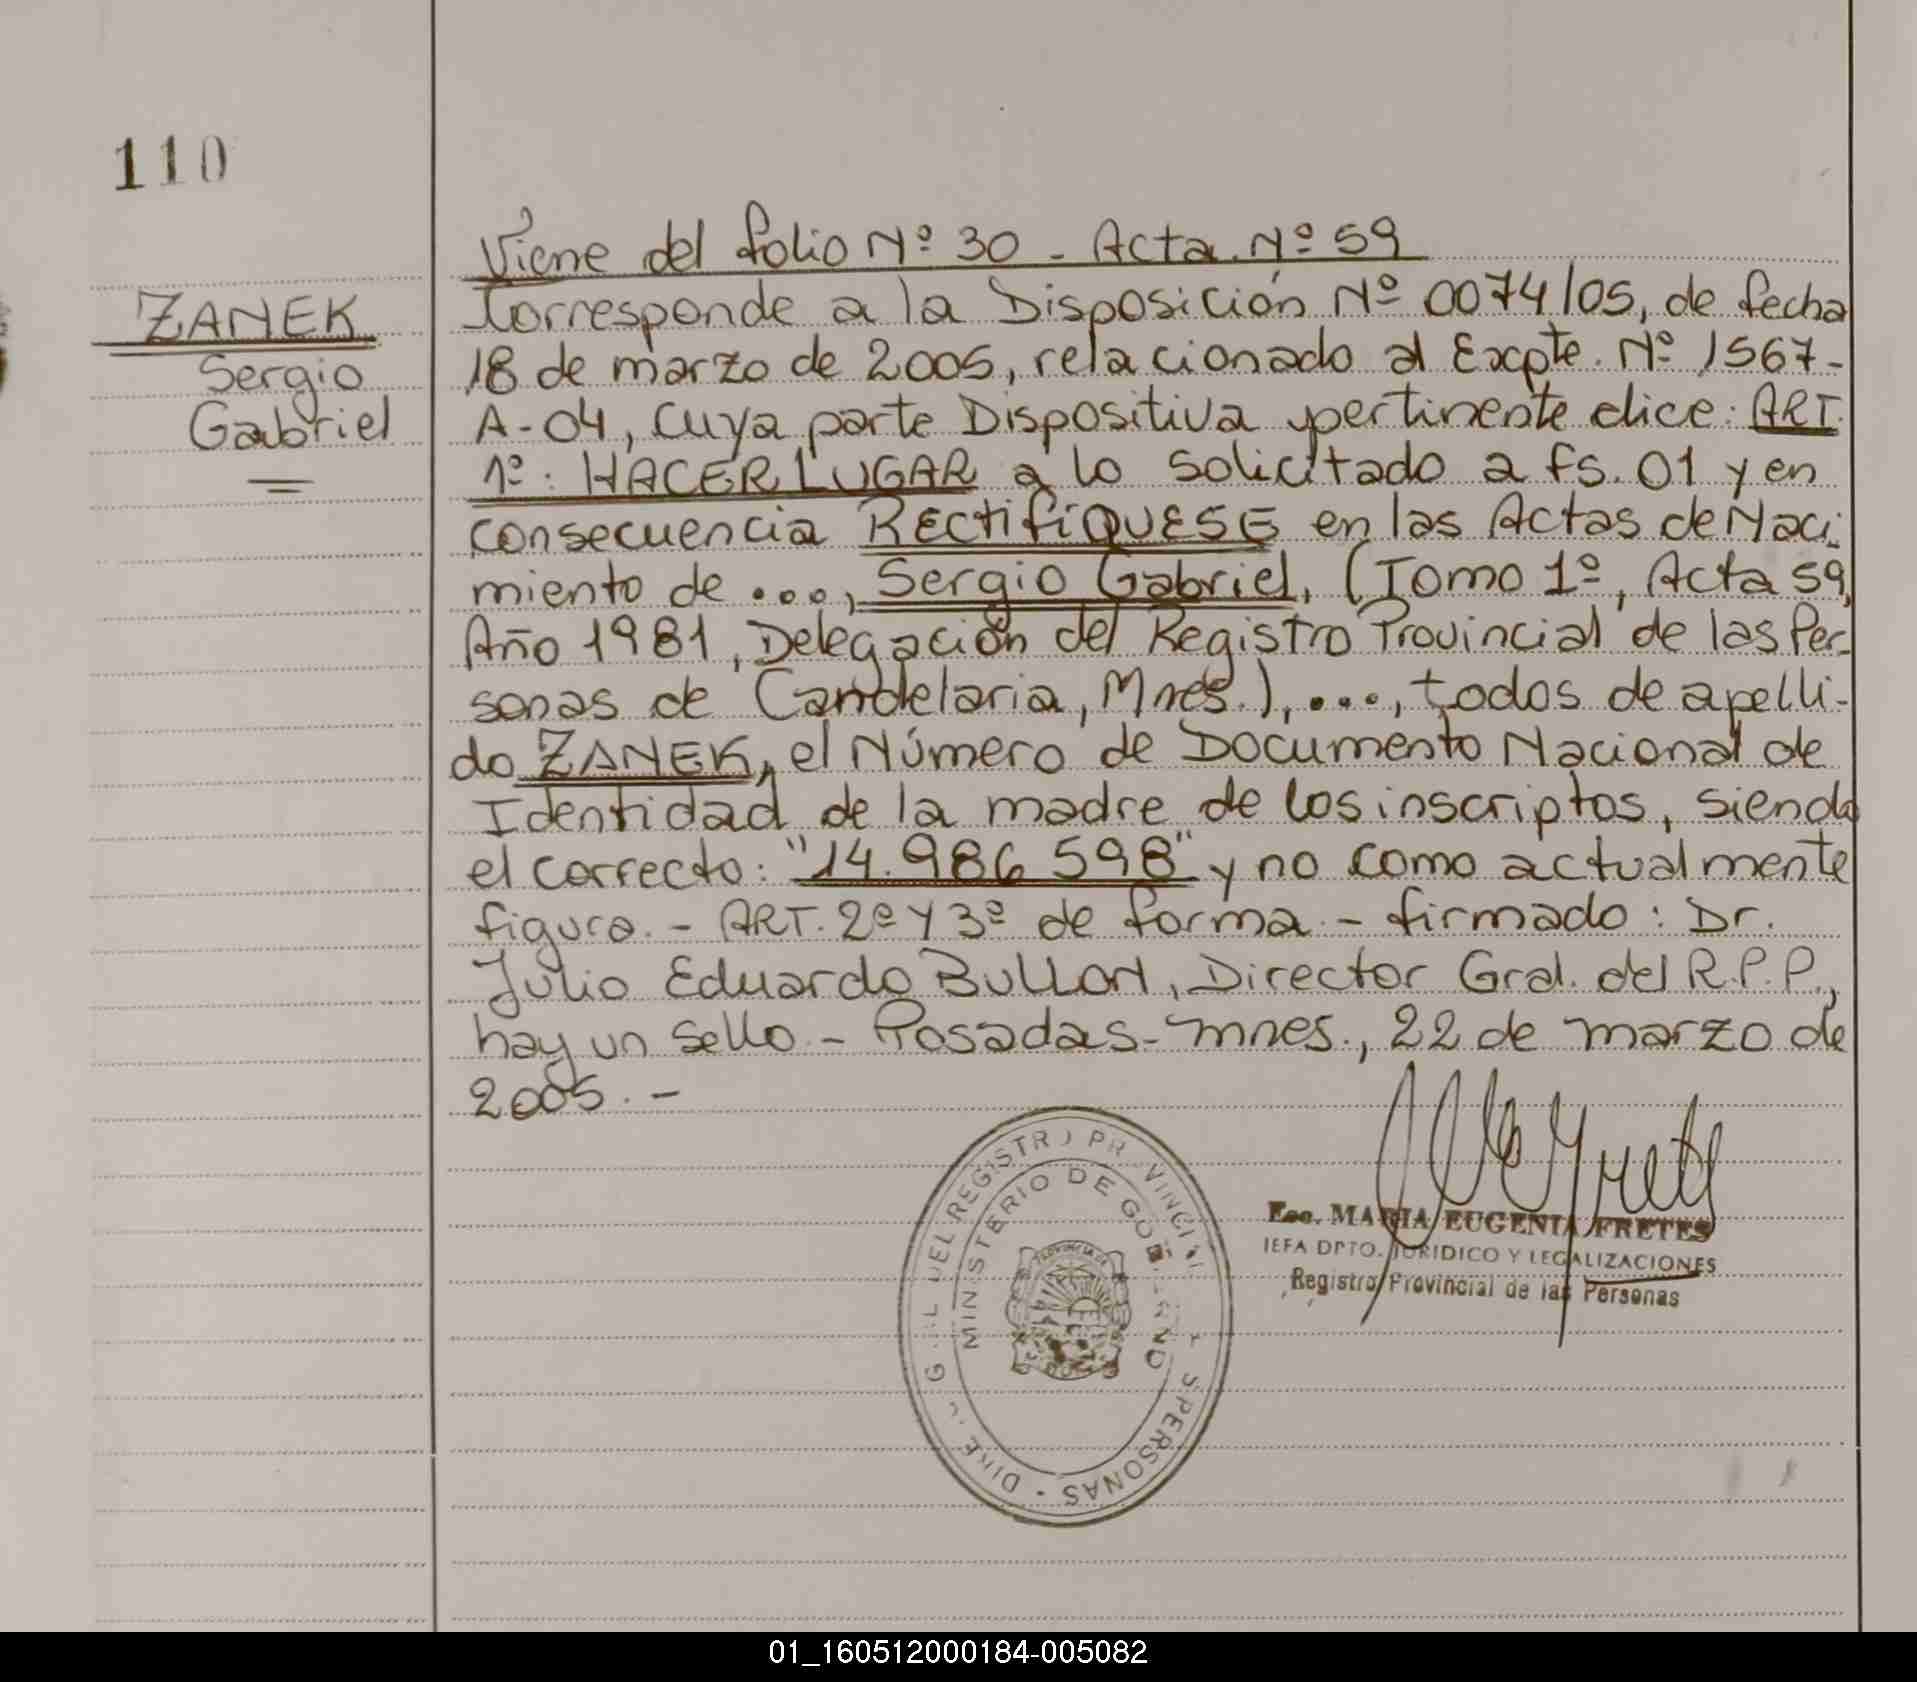 110
ZANEK
Sergio
Gabriel
Viene del folio Nº 30 - Acta Nº 59
Corresponde a la Disposición Nº 0074/05, de fecha
18 de marzo de 2005, relacionado al Expte. Nº 1567-
A-04, cuya parte Dispositiva pertinente dice: ART.
1º: HACER LUGAR a lo solicitado a fs. 01 y en
consecuencia RECTIFIQUESE en las Actas de Naci-
miento de ..., Sergio Gabriel, (Tomo 1º, Acta 59,
Año 1981, Delegación del Registro Provincial de las Per-
sonas de Candelaria, Mnes.), ..., todos de apelli-
do ZANEK, el Número de Documento Nacional de
Identidad de la madre de los inscriptos, siendo
el correcto: "14.986 598" y no como actualmente
figura. - ART. 2º y 3º de forma - firmado: Dr.
Julio Eduardo Bullon, Director Gral. del R.P.P.,
hay un sello - Posadas - Mnes., 22 de marzo de
2005. -
MINISTERIO DE GOB
PERSONAS
Esc. MARIA EUGENIA FRETES
JEFA DPTO. JURIDICO Y LEGALIZACIONES
Registro Provincial de las Personas
01_160512000184-005082